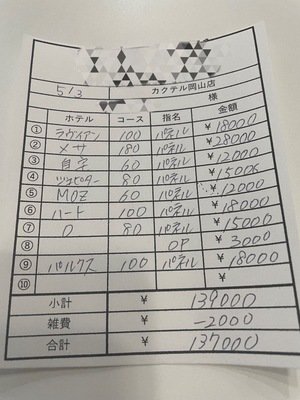 5/3 カクテル岡山店
様
ホテル コース 指名 金額
① ラヴィアン 100 パネル ¥18000
② メサ 180 パネル ¥28000
③ 自宅 60 パネル ¥12000
④ 80 パネル ¥15000
⑤ MOZ 60 パネル ¥12000
⑥ ハート 100 パネル ¥18000
⑦ O 80 パネル ¥15000
⑧ OP ¥3000
⑨ パルクス 100 パネル ¥18000
⑩ ¥
小計 ¥ 139000
雑費 ¥ -2000
合計 ¥ 137000